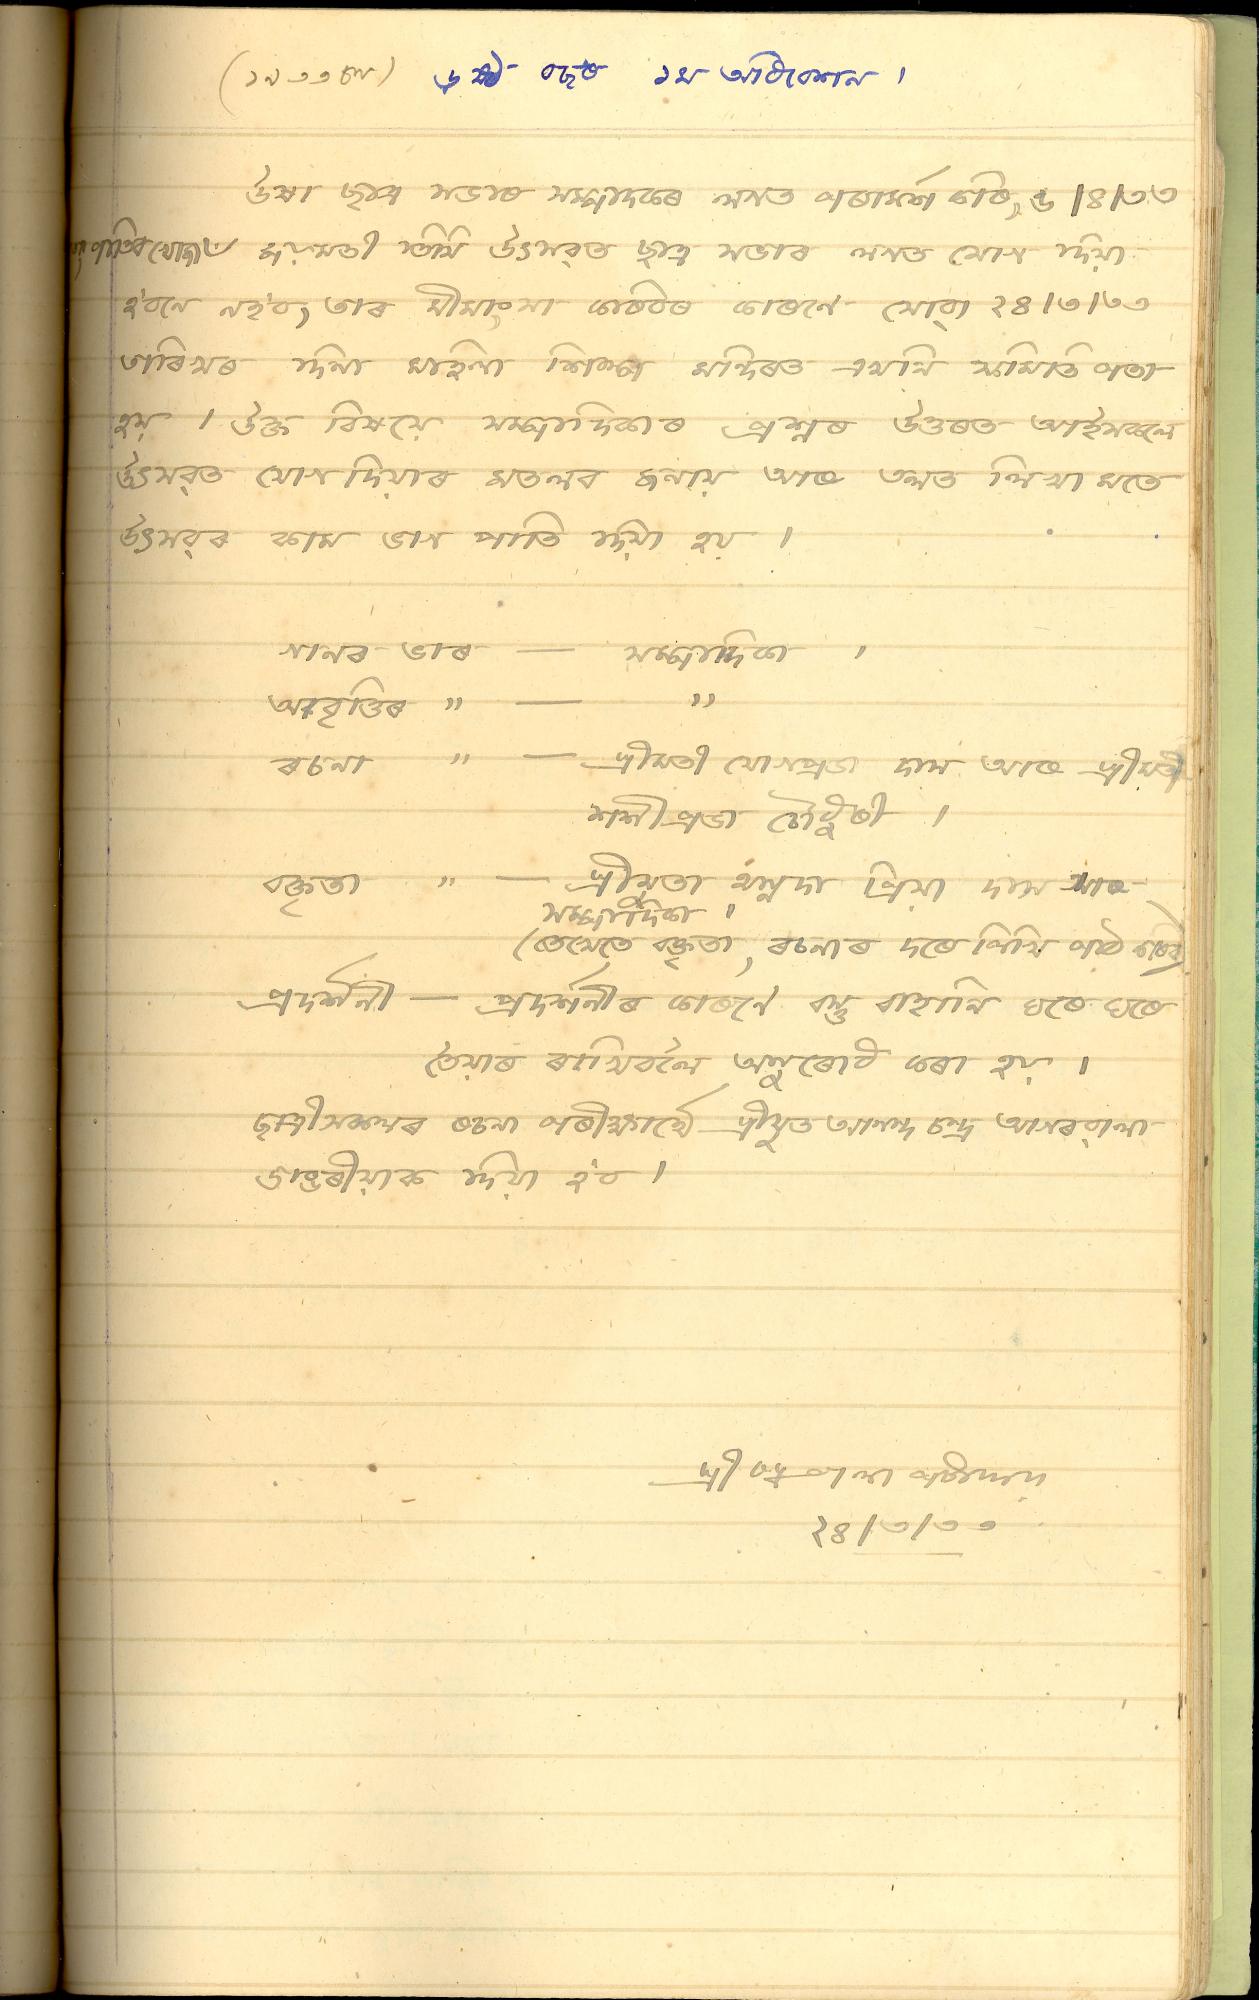 (১৯৩৩ চন) ৬ষ্ঠ বছৰ ১ম অধিবেশন ।
উষা ছাত্ৰ সভাৰ সম্পাদকৰ লগত পৰামৰ্শ কৰি, ৬/৪/৩৩
জয়মতী তিথি উৎসৱত ছাত্ৰ সভাৰ লগত যোগ দিয়া
হ'বনে নহ'ব, তাৰ মীমাংসা কৰিবৰ কাৰণে যোৱা ২৪/৩/৩৩
তাৰিখৰ দিনা মহিলা শিল্প মন্দিৰত এখনি সমিতি পতা
হয় । উক্ত বিষয়ে সম্পাদিকাৰ প্ৰশ্নৰ উত্তৰত আইসকলে
উৎসৱত যোগ দিয়াৰ মতলব জনায় আৰু তলত লিখা মতে
উৎসৱৰ কাম ভাগ পাতি দিয়া হয় ।
গানৰ ভাৰ — সম্পাদিকা ।
আবৃত্তিৰ " — "
ৰচনা " — শ্ৰীমতী যোগপ্ৰভা দাস আৰু শ্ৰীমতী
শশীপ্ৰভা চৌধুৰী ।
বক্তৃতা " — শ্ৰীযুতা অন্নদা প্ৰিয়া দাস আৰু
সম্পাদিকা ।
(তেখেতে বক্তৃতা, ৰচনাৰ দৰে লিখি পাঠ কৰিব)
প্ৰদৰ্শনী — প্ৰদৰ্শনীৰ কাৰণে বস্তু বাহানি ঘৰে ঘৰে
তৈয়াৰ ৰাখিবলৈ অনুৰোধ কৰা হয় ।
ছাত্ৰীসকলৰ ৰচনা পৰীক্ষাৰ্থে শ্ৰীযুত আনন্দ চন্দ্ৰ আগৰৱালা
ডাঙৰীয়াক দিয়া হ'ব ।
শ্ৰী
২৪/৩/৩৩